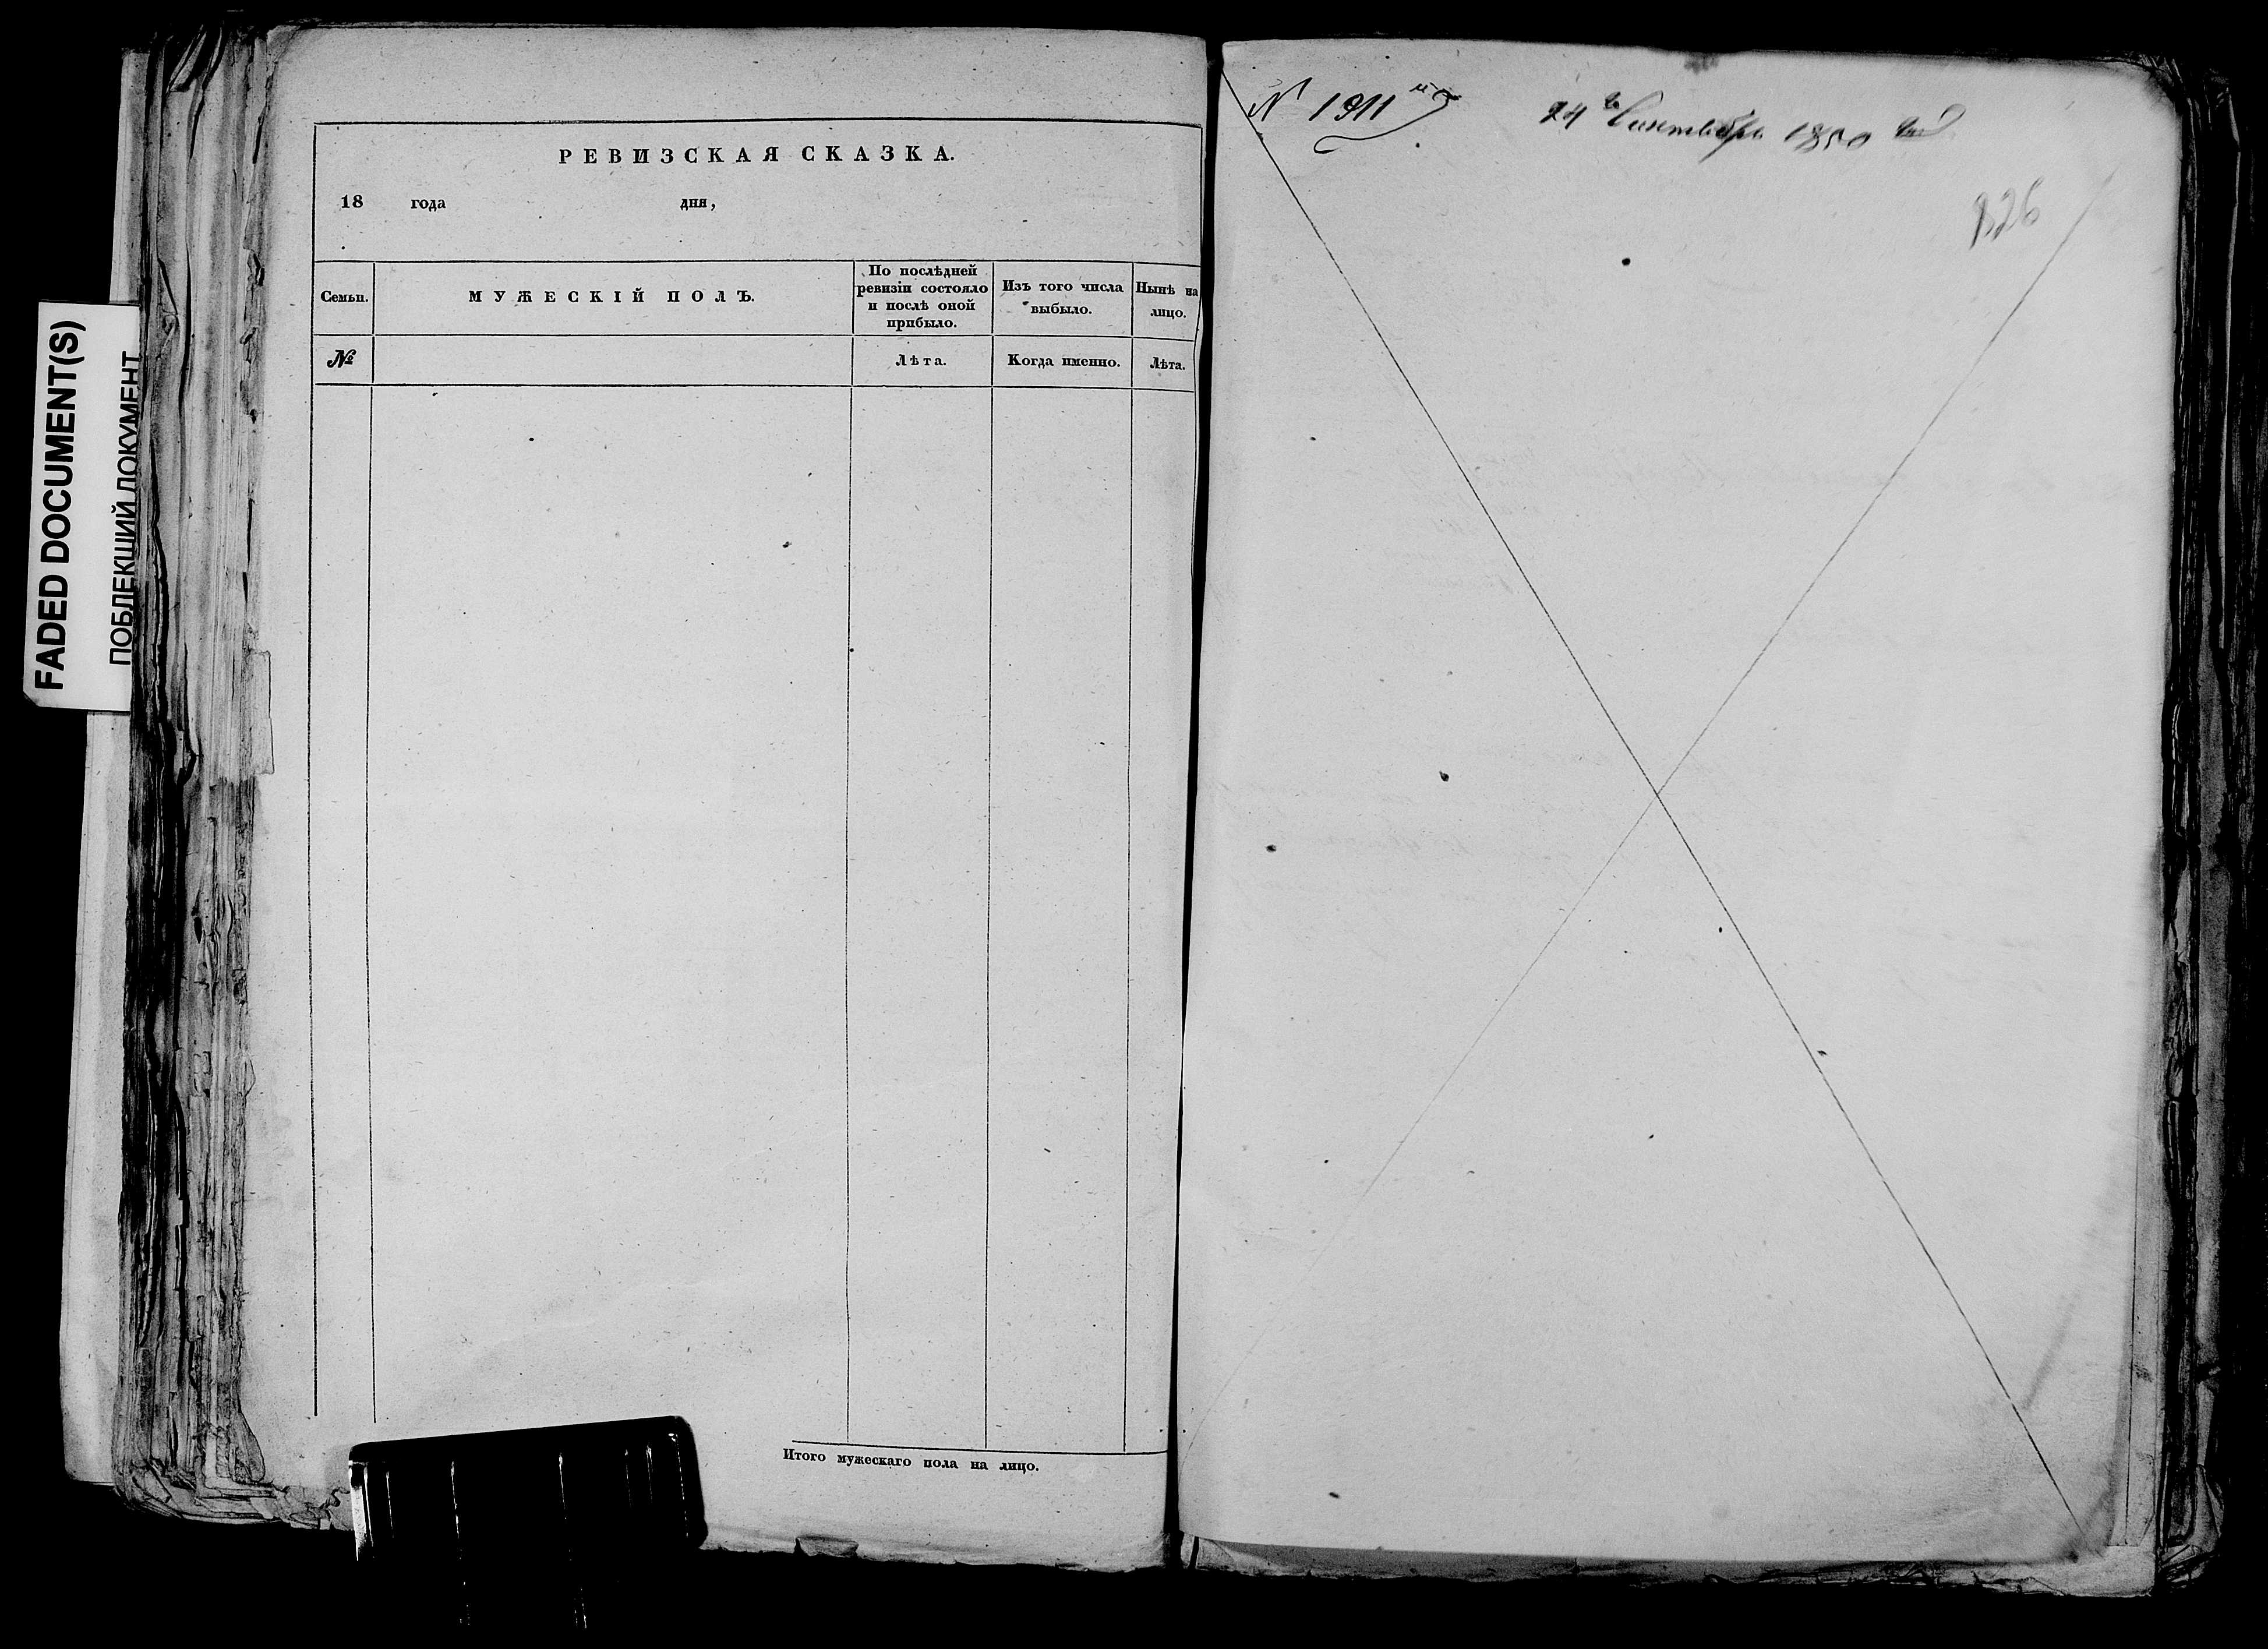 FADED DOCUMENT(S)
ПОБЛЕКШИЙ ДОКУМЕНТ
РЕВИЗСКАЯ СКАЗКА.
18 года дня,
Семьи.
МУЖЕСКІЙ ПОЛЪ.
По послѣдней
ревизіи состояло
и послѣ оной
прибыло.
Изъ того числа
выбыло.
Нынѣ на
лицо.
№
Лѣта.
Когда именно.
Лѣта.
Итого мужескаго пола на лицо.
N 1911
24 Сентября 1850
826